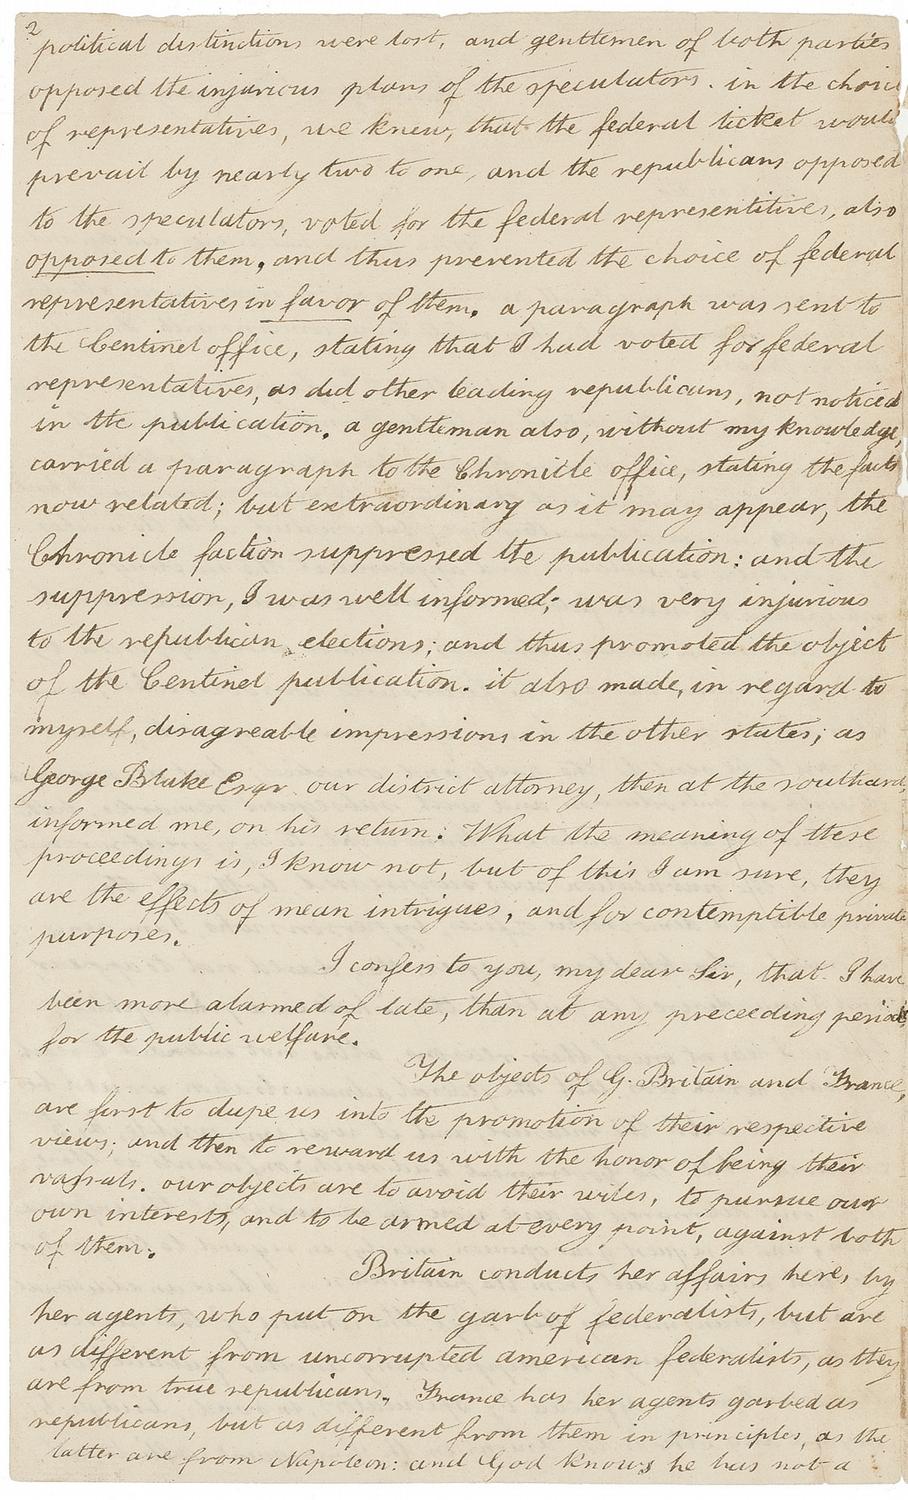 2
political distinctions were lost, and gentlemen of both parties
opposed the injurious plans of the speculators. in the choice
of representatives, we knew, that the federal ticket would
prevail by nearly two to one, and the republicans opposed
to the speculators, voted for the federal representitives, also
opposed to them, and thus prevented the choice of federal
representatives in favor of them. a paragraph was sent to
the Centinel office, stating that I had voted for federal
representatives, as did other leading republicans, not noticed
in the publication. a gentleman also, without my knowledge,
carried a paragraph to the Chronicle office, stating the facts
now related; but extraordinary as it may appear, the
Chronicle faction suppressed the publication: and the
suppression, I was well informed, was very injurious
to the republican elections; and thus promoted the object
of the Centinel publication. it also made, in regard to
myself, disagreable impressions in the other states; as
George Blake Esqr our district attorney, then at the southard,
informed me, on his return. What the meaning of these
proceedings is, I know not, but of this I am sure, they
are the effects of mean intrigues, and for contemptible private
purposes.
I confess to you, my dear Sir, that I have
been more alarmed of late, than at any preceeding period,
for the public welfare.
The objects of G. Britain and France,
are first to dupe us into the promotion of their respective
views; and then to reward us with the honor of being their
vassals. our objects are to avoid their wiles, to pursue our
own interests, and to be armed at every point, against both
of them.
Britain conducts her affairs here, by
her agents, who put on the garb of federalists, but are
as different from uncorrupted american federalists, as they
are from true republicans. France has her agents garbed as
republicans, but as different from them in principles, as the
latter are from Napoleon: and God knows he has not a